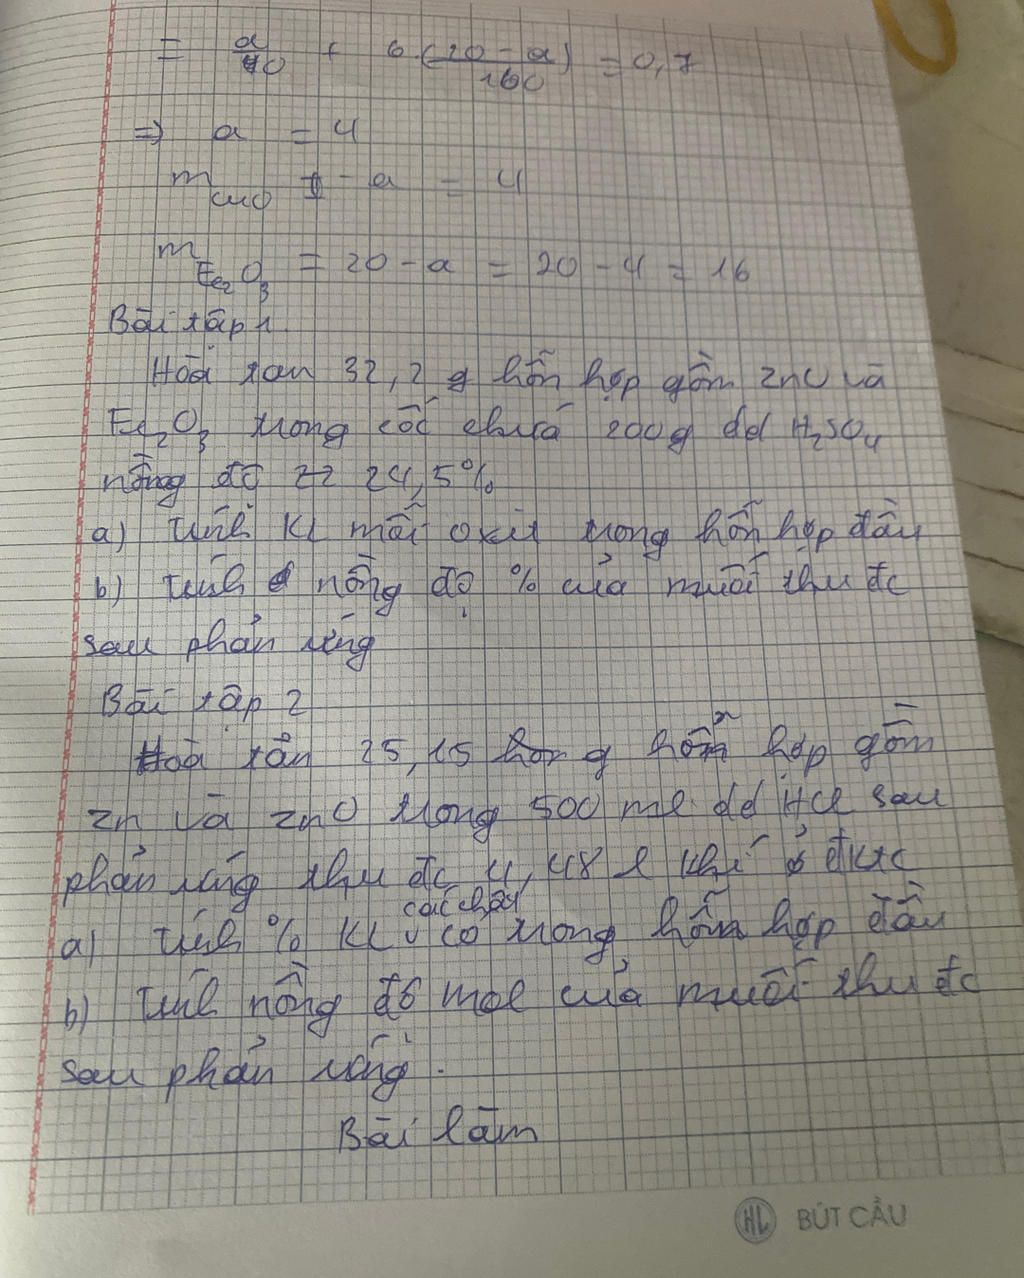 = a/40 + 6.(20-a)/160 = 0,7
=> a = 4
mCuO = a = 4
mFe2O3 = 20 - a = 20 - 4 = 16
Bài tập 1
Hoà tan 32,2 g hỗn hợp gồm ZnO và
Fe2O3 trong cốc chứa 200g dd H2SO4
nồng độ 24,5%
a) tính KL mỗi oxit trong hỗn hợp đầu
b) tính nồng độ % của muối thu đc
sau phản ứng
Bài tập 2
Hoà tan 25,15 g hỗn hợp gồm
Zn và ZnO trong 500 ml dd HCl sau
phản ứng thu đc 4,48 l khí ở đktc
a) tính % KL các chất có trong hỗn hợp đầu
b) tính nồng độ mol của muối thu đc
sau phản ứng.
Bài làm
HL BÚT CẦU